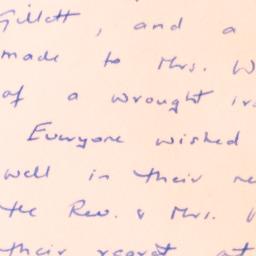 Gillett, and a
made to Mrs. W
of a wrought iro
Everyone wished
well in their ne
the Rev. & Mrs. W
their regret at